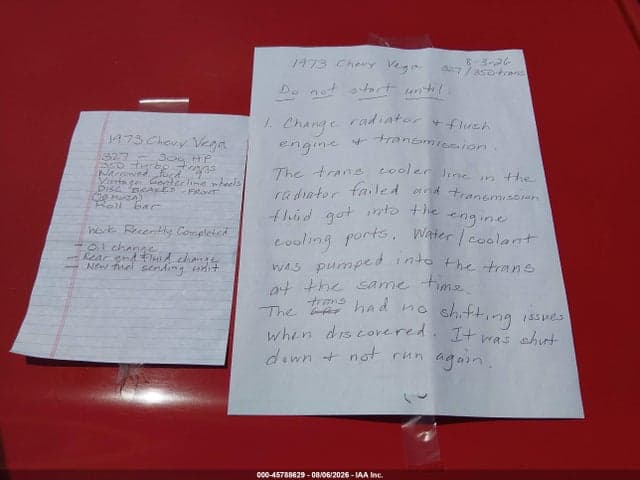 1973 Chevy Vega
327 - 300 HP
350 turbo trans
Narrowed Ford 9"
Vintage Centerline wheels
DISC BRAKES - FRONT
Roll bar
Work Recently Completed
- Oil change
- Rear end fluid change
- New fuel sending unit
1973 Chevy Vega 8-3-26
327/350 trans
Do not start until:
1. Change radiator & flush
engine & transmission.
The trans cooler line in the
radiator failed and transmission
fluid got into the engine
cooling ports. Water/coolant
was pumped into the trans
at the same time.
The trans had no shifting issues
when discovered. It was shut
down & not run again.
000-45788629 - 08/06/2026 - IAA Inc.